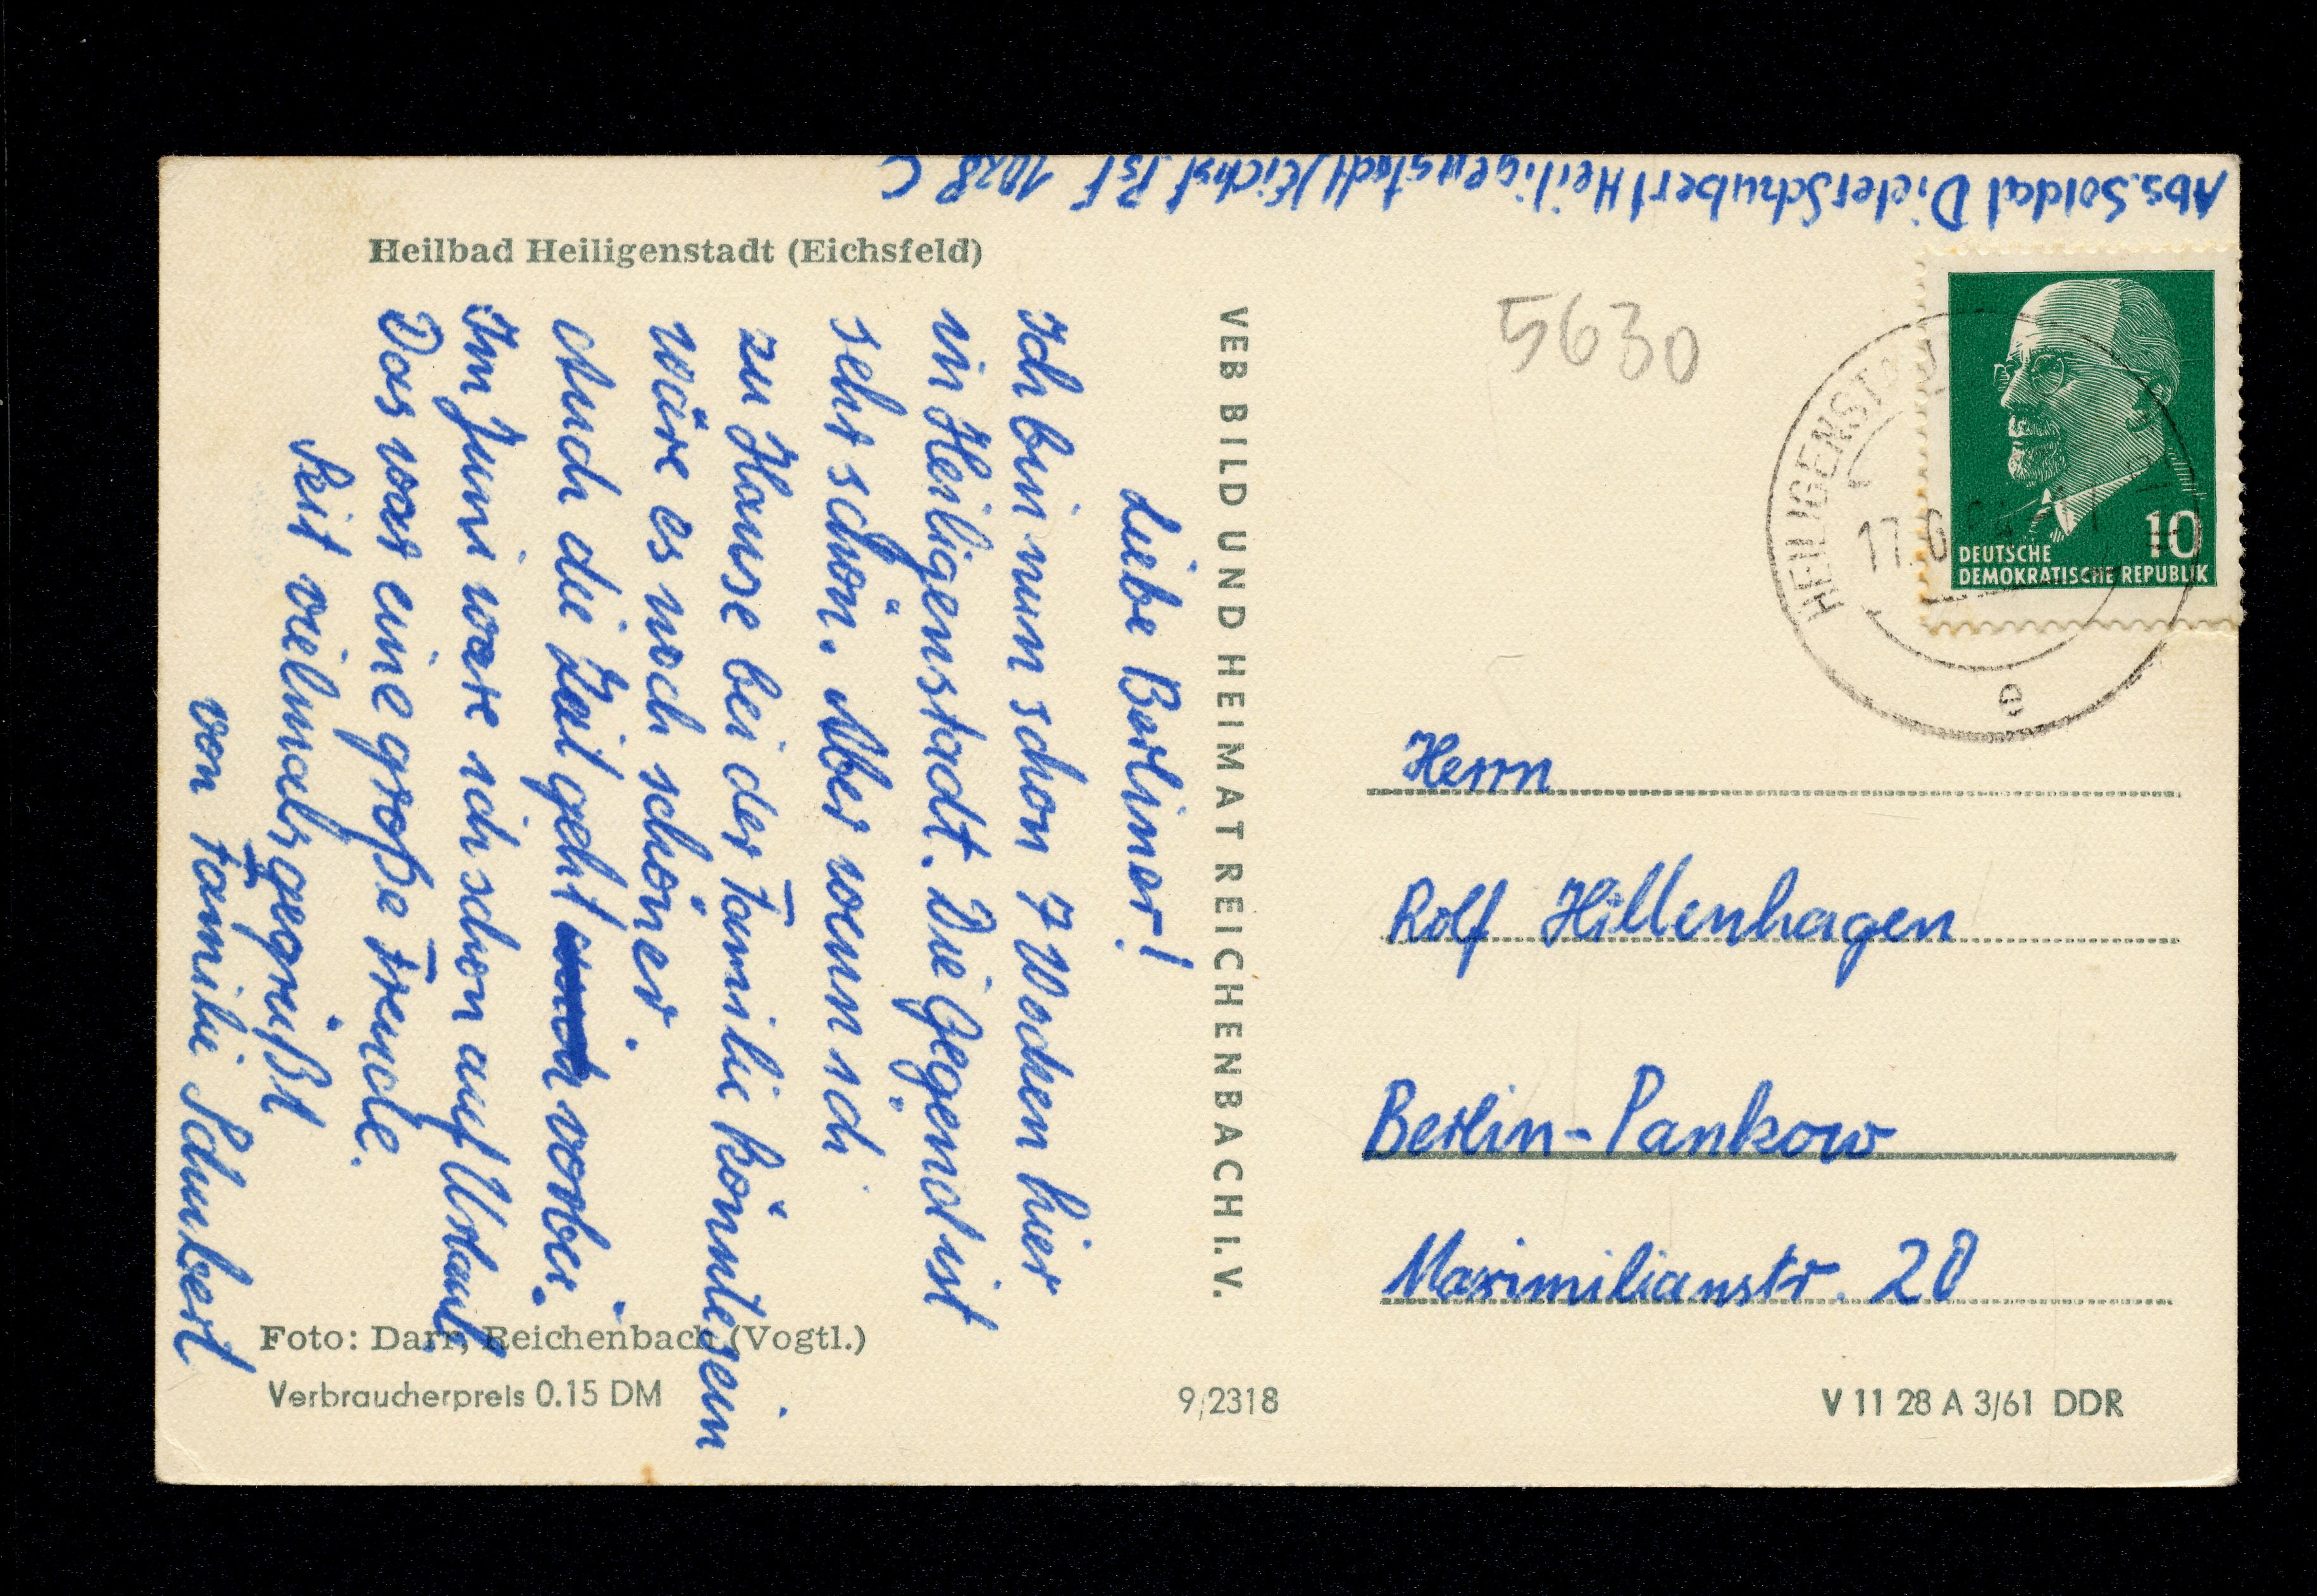 Abs. Soldat Dieter Schubert Heiligenstadt/Eichsf. Psf 1028 C
Heilbad Heiligenstadt (Eichsfeld)
Liebe Berliner!
Ich bin nun schon 7 Wochen hier
in Heiligenstadt. Die Gegend ist
sehr schön. Aber wenn ich
zu Hause bei der Familie könnte sein
wäre es noch schöner.
Auch die Zeit geht vorbei.
Im Juni ware ich schon auf Urlaub.
Das war eine große Freude.
Seit vielmals gegrüßt
von Familie Schubert
Foto: Darr, Reichenbach (Vogtl.)
Verbraucherpreis 0.15 DM
VEB BILD UND HEIMAT REICHENBACH I. V.
9/2318
5630
HEILIGENSTADT
17.6
e
10
DEUTSCHE
DEMOKRATISCHE REPUBLIK
Herrn
Rolf Hillenhagen
Berlin-Pankow
Maximilianstr. 20
V 11 28 A 3/61 DDR